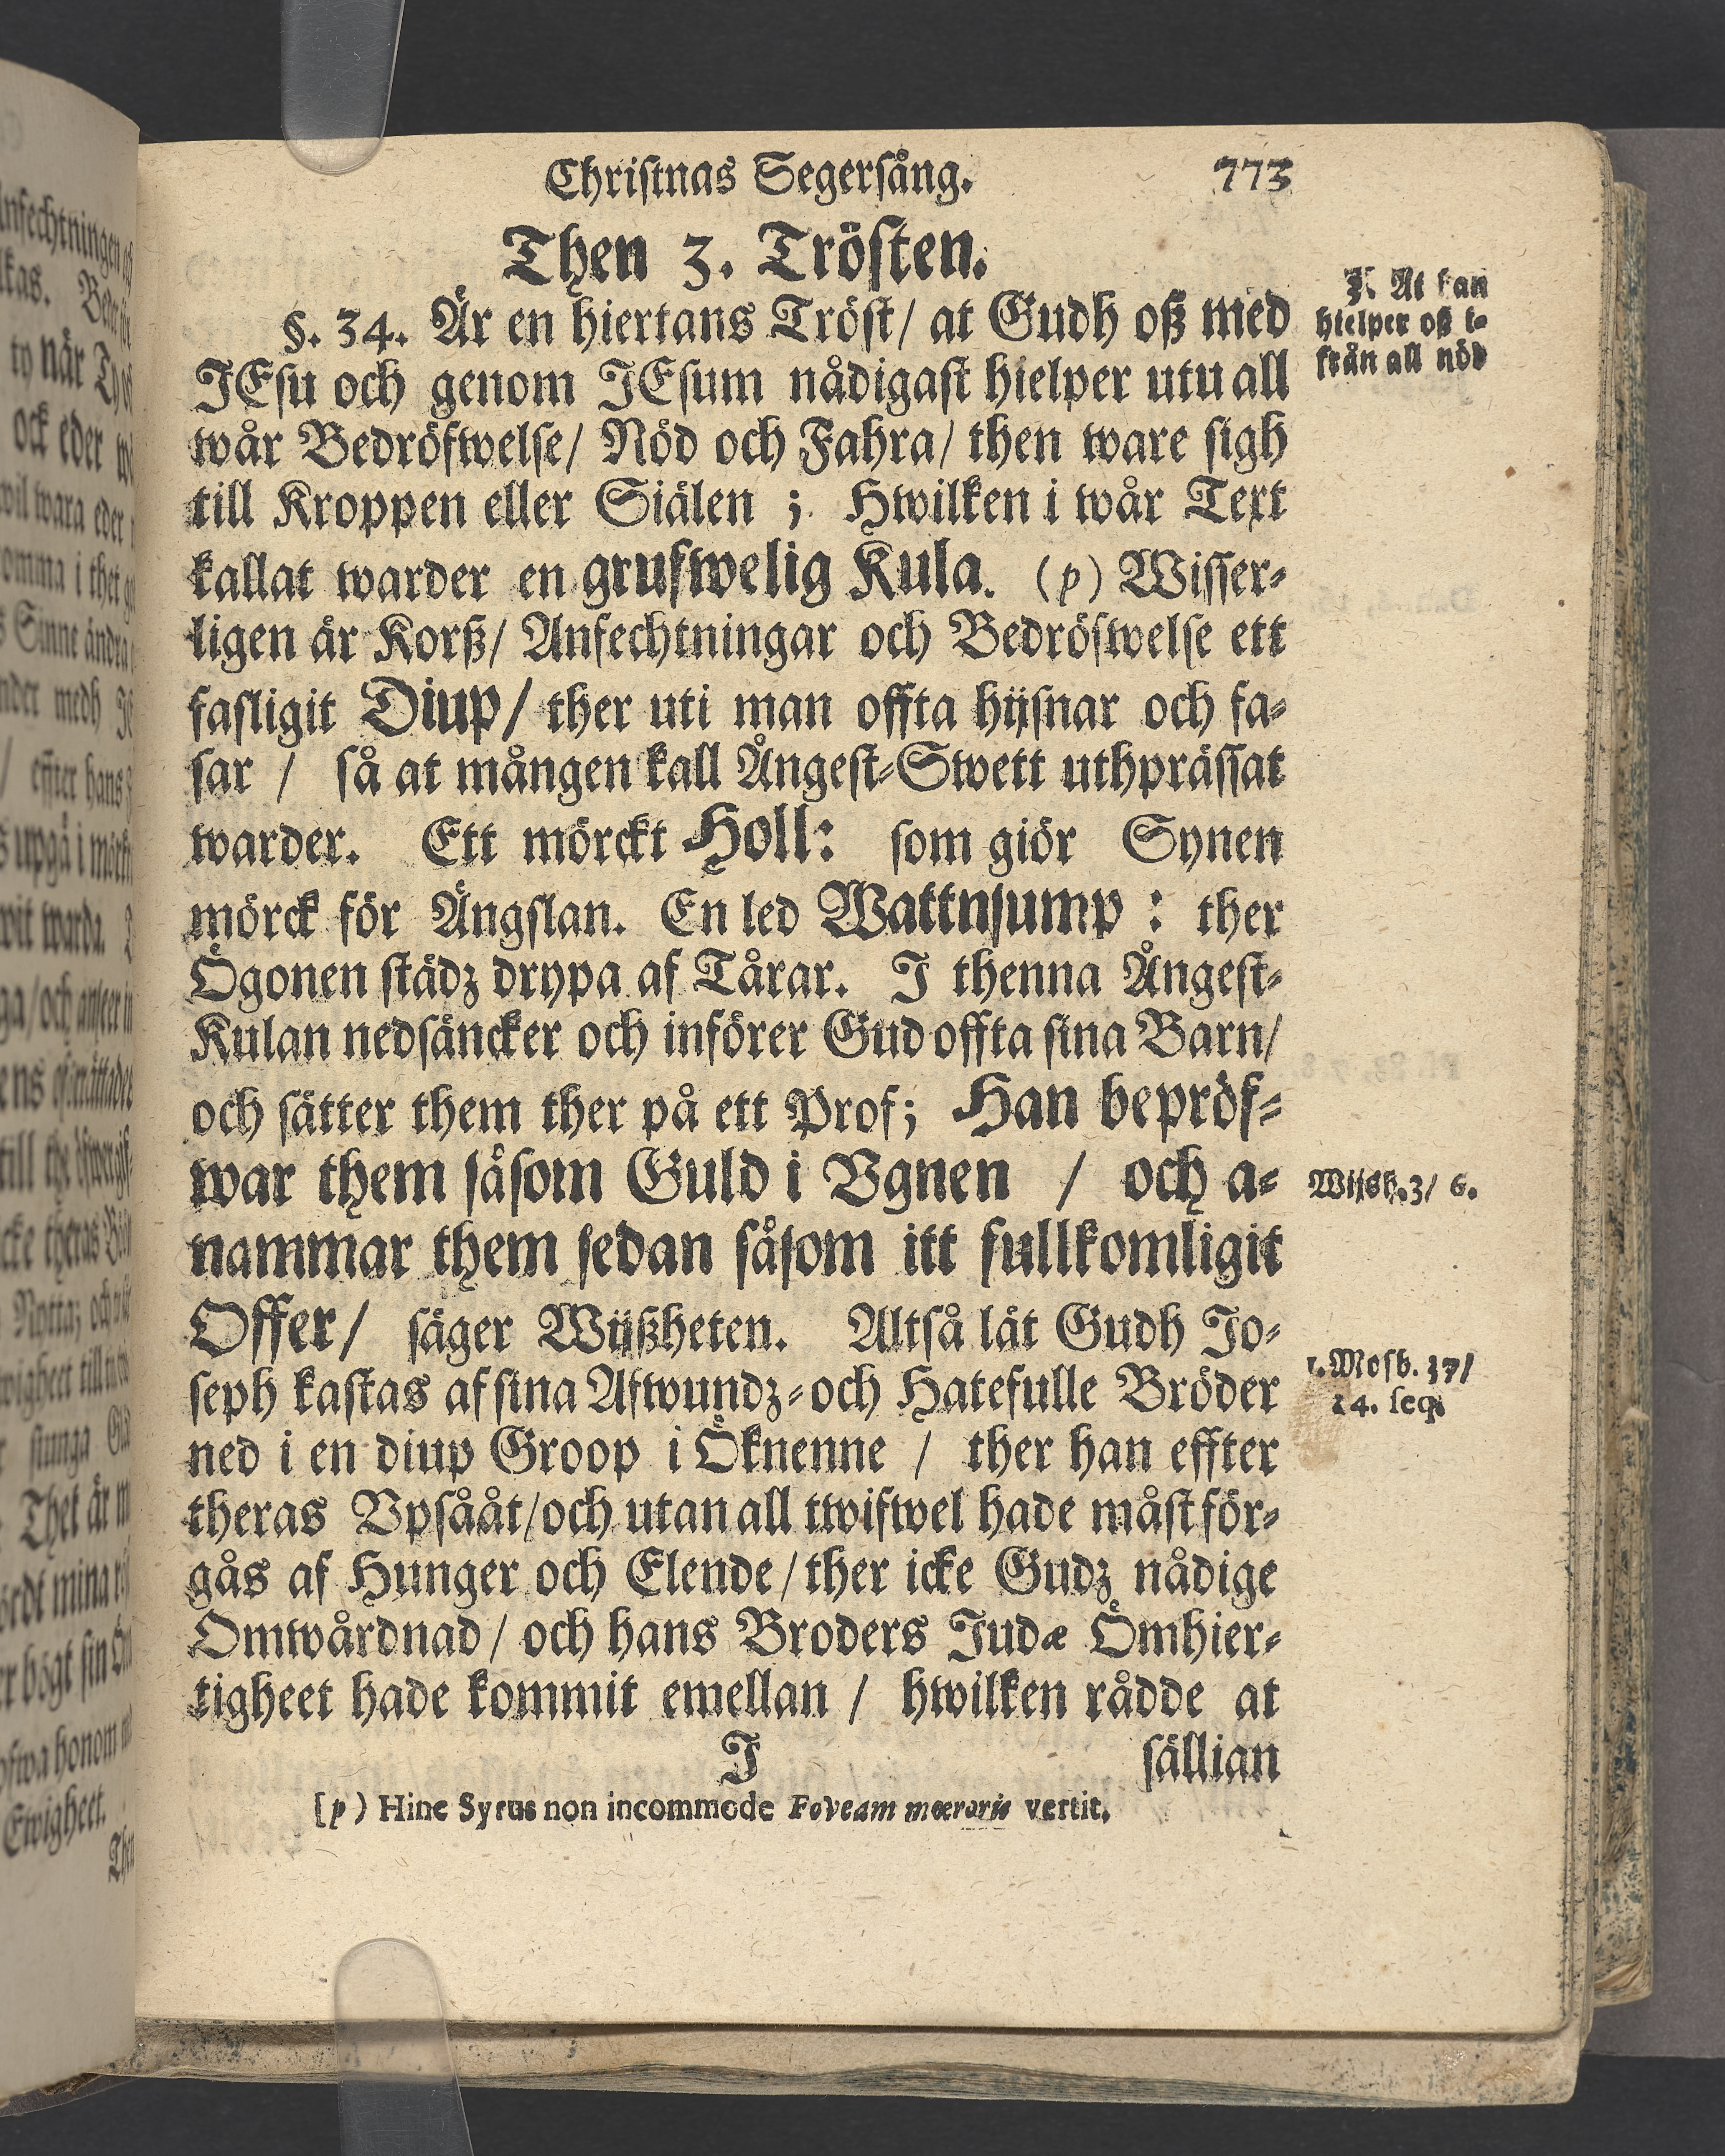 Christnas Segersång. 773
Then 3. Trösten.
§. 34. Är en hiertans Tröst/ at Gudh oß med
JEsu och genom JEsum nådigast hielper utu all
wår Bedröfwelse/ Nöd och Fahra/ then ware sigh
till Kroppen eller Siälen ; Hwilken i wår Text
kallat warder en grufwelig Kula. (p) Wisser-
ligen är Korß/ Anfechtningar och Bedröfwelse ett
fasligit Diup/ ther uti man offta hijsnar och fa-
sar / så at mången kall Ångest-Swett uthprässat
warder. Ett mörckt Holl: som giör Synen
mörck för Ängslan. En led Wattnsump : ther
Ögonen städz drypa af Tårar. I thenna Ångest-
Kulan nedsäncker och införer Gud offta sina Barn/
och sätter them ther på ett Prof; Han bepröf-
war them såsom Guld i Vgnen / och a-
nammar them sedan såsom itt fullkomligit
Offer/ säger Wijßheten. Altså lät Gudh Jo-
seph kastas af sina Afwundz-och Hatefulle Bröder
ned i en diup Groop i Öknenne / ther han effter
theras Vpsååt/och utan all twifwel hade måst för-
gås af Hunger och Elende/ther icke Gudz nådige
Omwårdnad/ och hans Broders Judæ Ömhier-
tigheet hade kommit emellan / hwilken rådde at
J sällian
[p) Hinc Syrus non incommode Foveam mœroris vertit.
3. At han
hielper oß i-
från all nöd
Wijsh.3/ 6.
1.Mosb. 37/
24. seq.